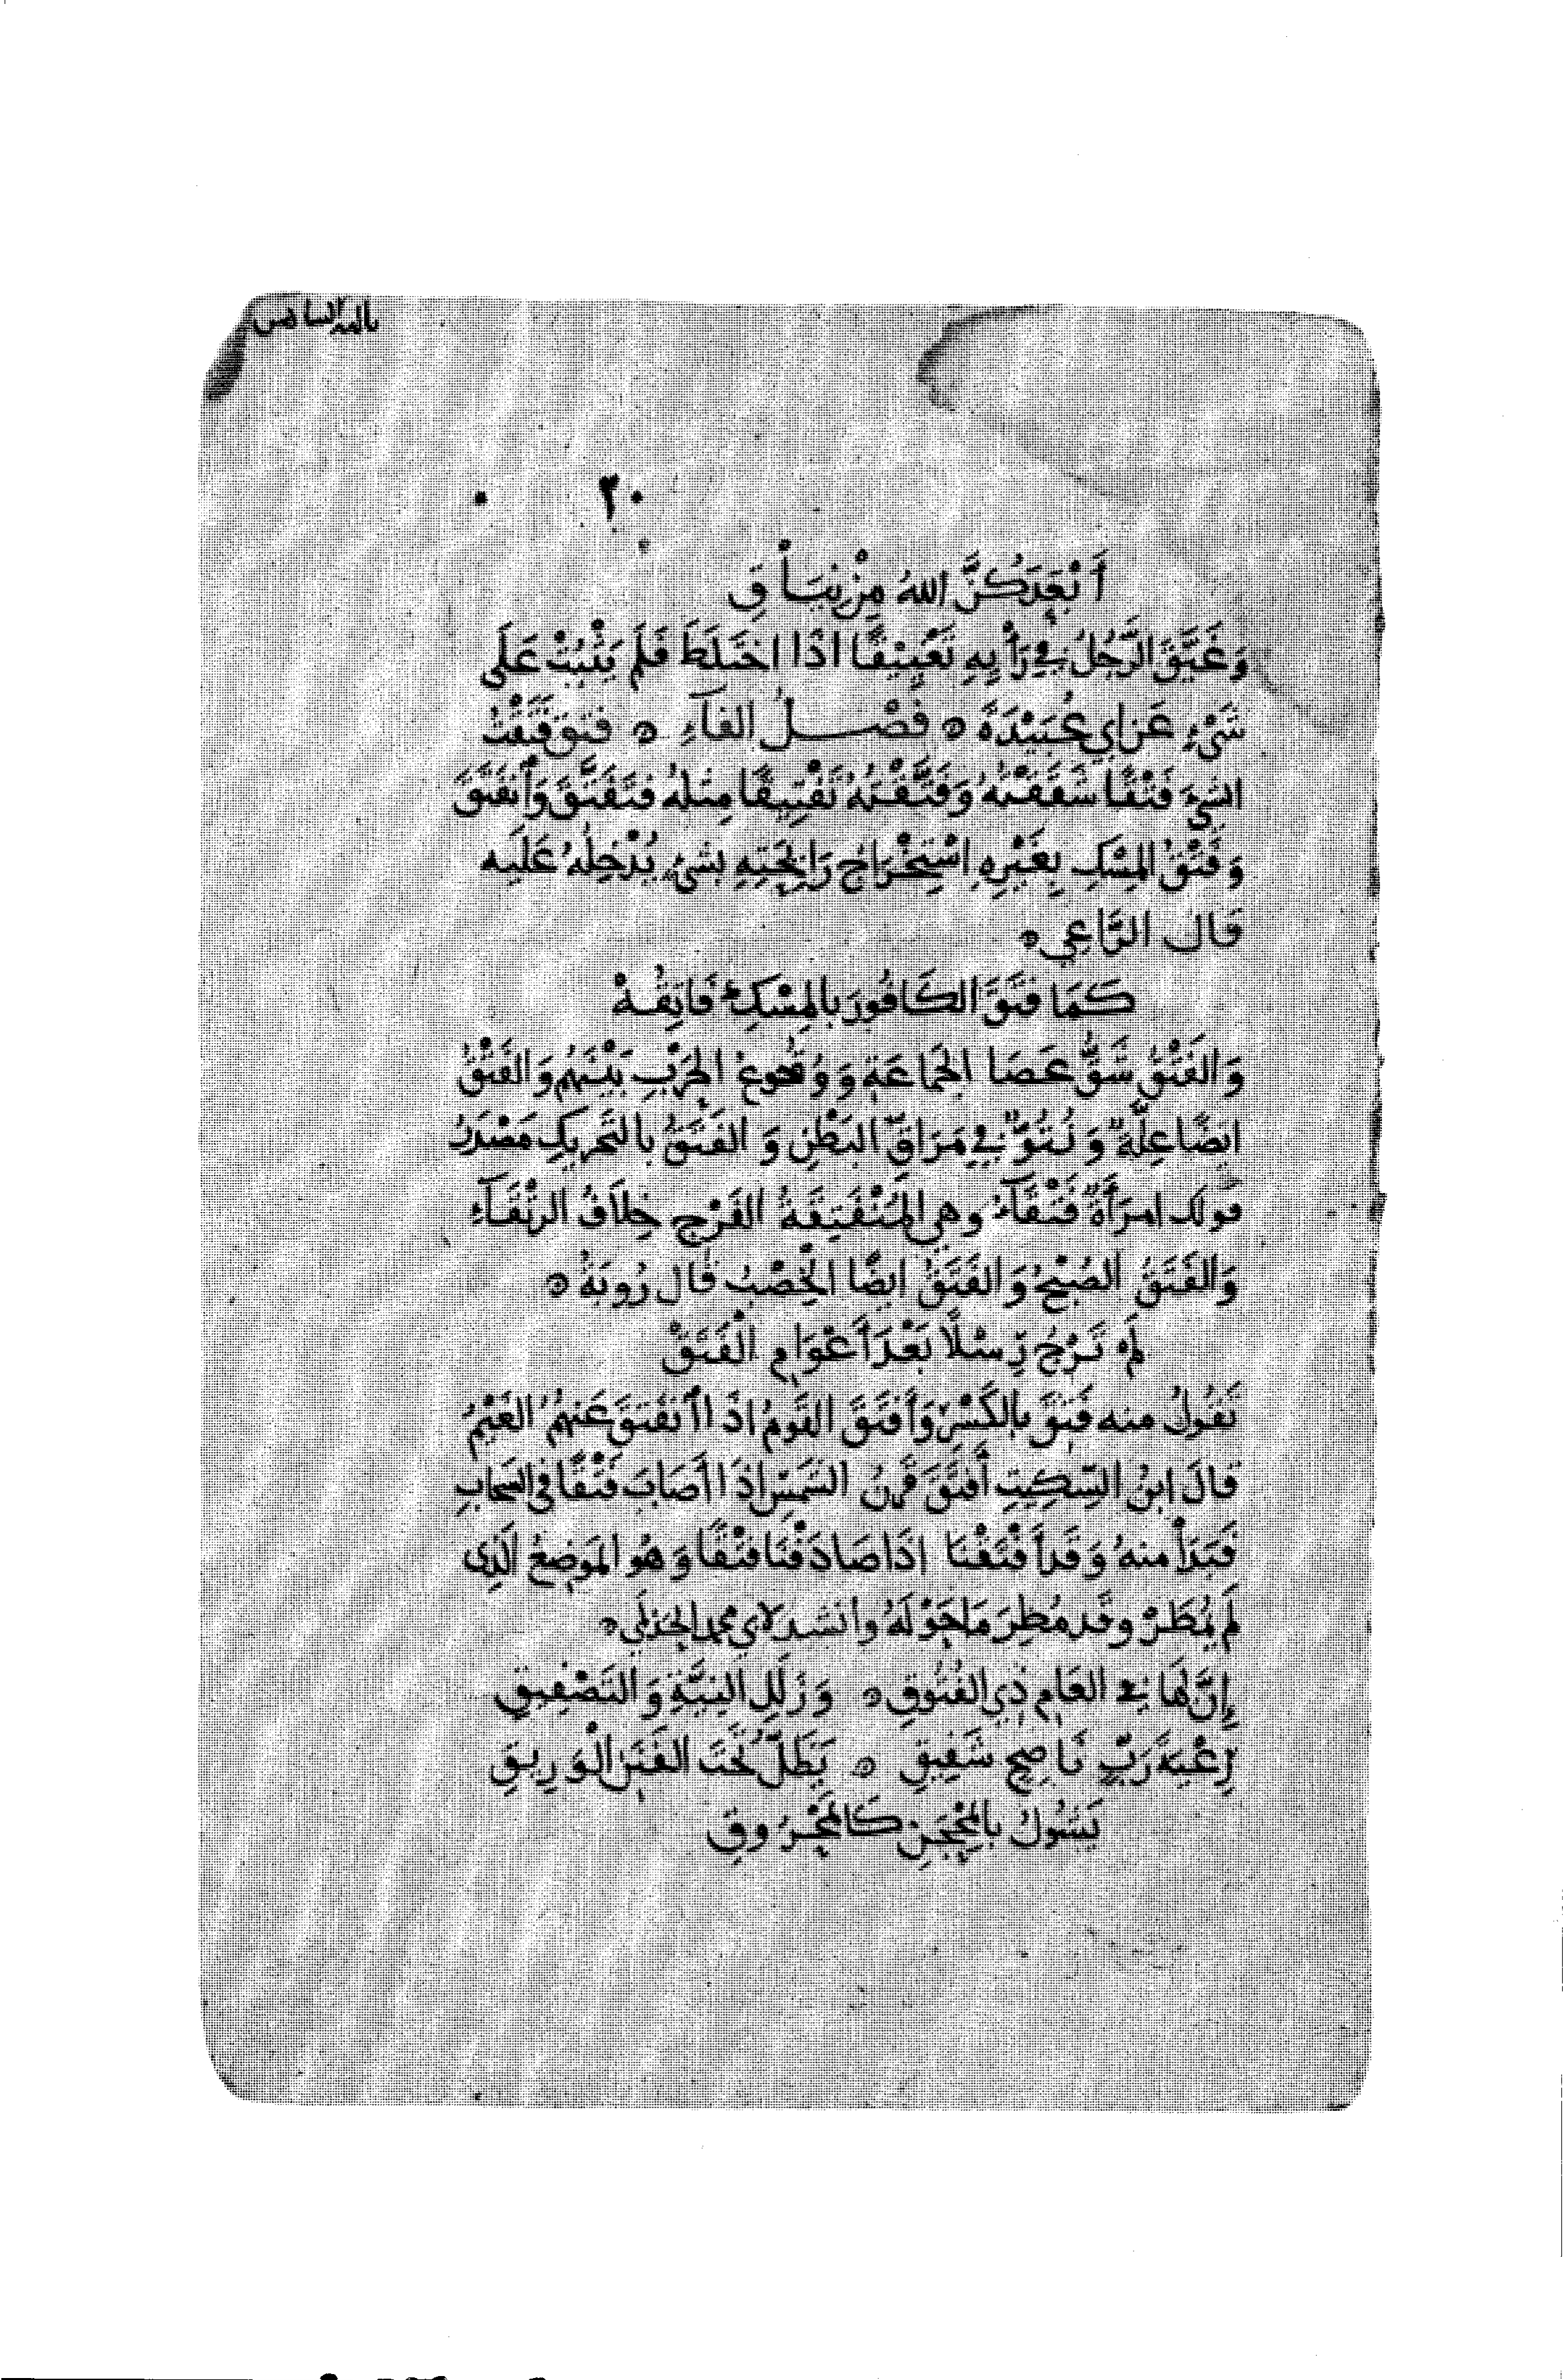 ٢٠
أَبْعَدَكُنَّ اللهُ مِنْ نِيَاقِ
وَغَيَّقَ الرَّجُلُ فِي رَأْيِهِ تَغْيِيْقًا اذَا اخْتَلَطَ فَلَمْ يَثْبُتْ عَلَى
شَيْءٍ عَن ابي عُبَيْدَةَ ۞ فَصْــلُ الفَآءِ ۞ فتق فَتَقْتُ
الشيءَ فَتْقًا شَقَقْتُهُ وَفَتَّقْتُهُ تَفْتِيقًا مِثلهُ فَتَفَتَّقَ وَأنفَتَقَ
وَفَتْقُ المِسْكِ بِغَيْرِهِ اسْتِخْرَاجُ رَائِحَتِهِ بشَيْءٍ يُدْخِلُهُ عَلَيه
قَالَ الرَّاعِي ۞
كَمَا فَتَقَ الكَافُورَ بالمِسْكِ فَاتِقُهْ
وَالفَتْقُ شَقُّ عَصَا الجَمَاعَةِ وَوُقُوعُ الحَرْبِ بَيْنَهُم وَالفَتْقُ
ايضًا عِلَّةٌ وَنُتُوٌّ فِي مَرَاقِّ البَطْنِ وَالفَتَقُ بالتَّحريكِ مَصْدَرُ
قولك امرَأَةٌ فَتْقَآءُ وهي المُنْفَتِقَةُ الفَرْجِ خِلَافُ الرتْقَآءِ
وَالفَتَقُ الصُبْحُ وَالفَتَقُ ايضًا الخِصْبُ قَال رُوبَةُ ۞
لَمْ تَرْجُ رِسْلًا بَعْدَ أَعْوَامِ الْفَتَقْ
تَقُولُ منه فَتِقَ بالكَسْرِ وَأَفتَقَ القَومُ اذَا أنفَتَقَ عَنهُمُ الغَيْمُ
قالَ ابنُ السِّكِيتِ أَفتَقَ قَرْنُ الشَمْسِ اذَا أصَابَ فَتْقًا في السَحَابِ
فَبَدَأَ منهُ وَقَد أَفْتَقْنَا اذَا صَادَفْنَا فَتْقًا وَهُو المَوَضِعُ الَذِى
لَم يُمْطَرْ وقَد مُطِرَ مَا حَوْلَهُ وانشد لابي محمد الحذلمي ۞
إِنَّ لَهَا فِي العَامِ ذِي الفُتُوقِ ۞ وَزَلَلِ النِيَّةِ وَالتَصْفِيقِ
رِعْيَةَ رَبٍّ نَاصِحٍ شَفِيقِ ۞ يَظَلُّ تَحْتَ الفَنَنِ الْوَرِيقِ
يَشُولُ بالمِحْجَنِ كَالمَحْرُوقِ